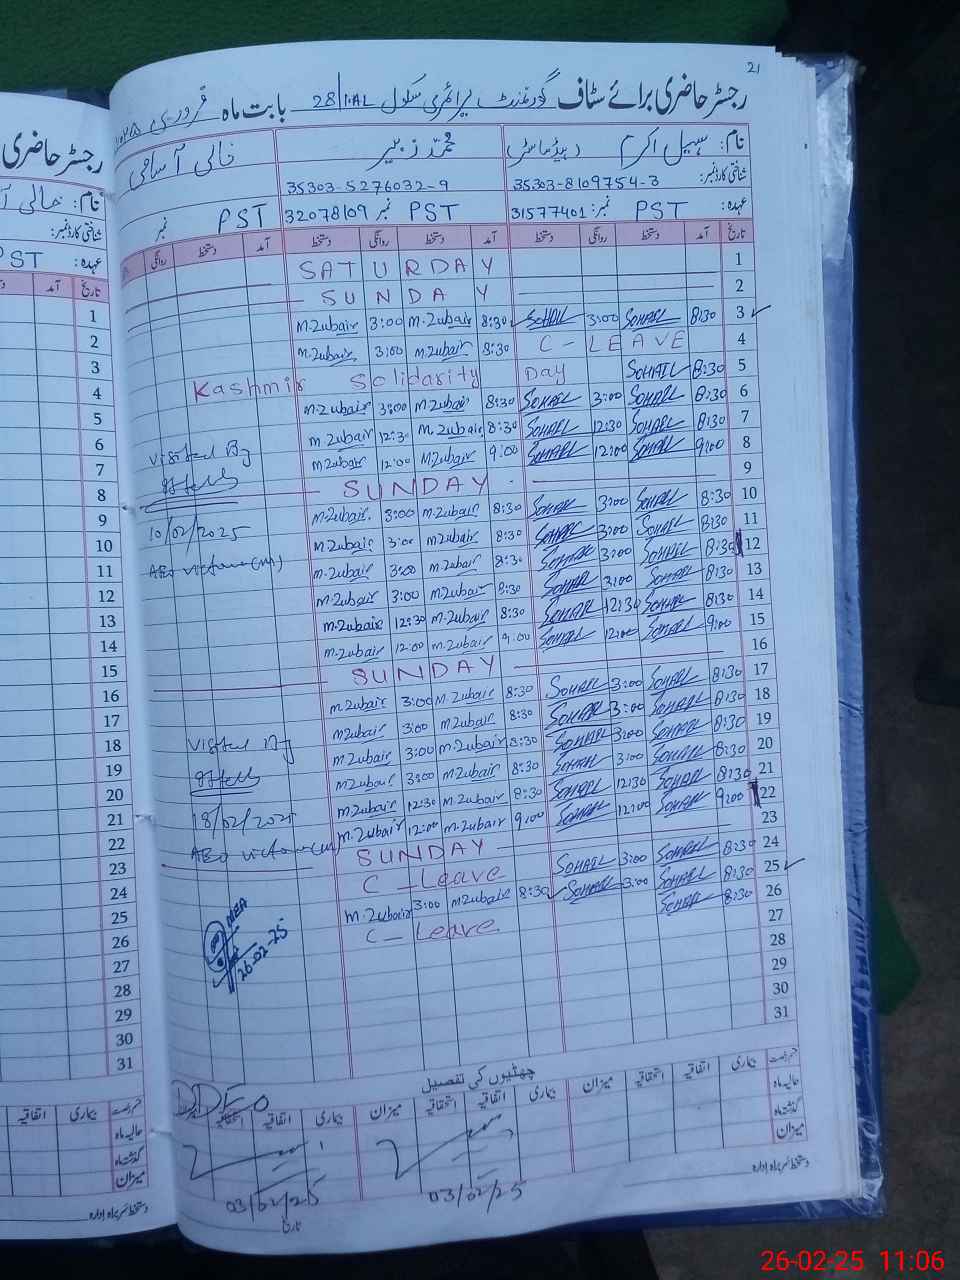 21
رجسٹر حاضری برائے سٹاف گورنمنٹ پرائمری سکول 28/1.AL بابت ماہ فروری
نام: سہیل اکرم ہیڈ ماسٹر محمد زبیر خالی آسامی
شناختی کارڈ نمبر: 35303-8109754-3 35303-5276032-9
عہدہ: PST نمبر: 31577401 PST نمبر 32078109 PST نمبر
تاریخ آمد دستخط روانگی دستخط آمد دستخط روانگی دستخط آمد دستخط روانگی
SATURDAY 1
SUNDAY 2
M.Zubair 3:00 M.Zubair 8:30 SOHAIL 3:00 SOHAIL 8:30 3
M.Zubair 3:00 M.Zubair 8:30 C-LEAVE 4
Kashmir Solidarity Day SOHAIL 8:30 5
M.Zubair 3:00 M.Zubair 8:30 SOHAIL 3:00 SOHAIL 8:30 6
M.Zubair 12:30 M.Zubair 8:30 SOHAIL 12:30 SOHAIL 8:30 7
M.Zubair 12:00 M.Zubair 9:00 SOHAIL 12:00 SOHAIL 9:00 8
SUNDAY 9
M.Zubair 3:00 M.Zubair 8:30 SOHAIL 3:00 SOHAIL 8:30 10
M.Zubair 3:00 M.Zubair 8:30 SOHAIL 3:00 SOHAIL 8:30 11
M.Zubair 3:00 M.Zubair 8:30 SOHAIL 3:00 SOHAIL 8:30 12
M.Zubair 3:00 M.Zubair 8:30 SOHAIL 3:00 SOHAIL 8:30 13
M.Zubair 12:30 M.Zubair 8:30 SOHAIL 12:30 SOHAIL 8:30 14
M.Zubair 12:00 M.Zubair 9:00 SOHAIL 12:00 SOHAIL 9:00 15
SUNDAY 16
M.Zubair 3:00 M.Zubair 8:30 SOHAIL 3:00 SOHAIL 8:30 17
M.Zubair 3:00 M.Zubair 8:30 SOHAIL 3:00 SOHAIL 8:30 18
M.Zubair 3:00 M.Zubair 8:30 SOHAIL 3:00 SOHAIL 8:30 19
M.Zubair 3:00 M.Zubair 8:30 SOHAIL 3:00 SOHAIL 8:30 20
M.Zubair 12:30 M.Zubair 8:30 SOHAIL 12:30 SOHAIL 8:30 21
M.Zubair 12:00 M.Zubair 9:00 SOHAIL 12:00 SOHAIL 9:00 22
SUNDAY 23
C-Leave SOHAIL 3:00 SOHAIL 8:30 24
M.Zubair 3:00 M.Zubair 8:30 SOHAIL 3:00 SOHAIL 8:30 25
C-Leave SOHAIL 8:30 26
27
28
29
30
31
Visited By
10/02/2025
AEO
Visited By
18/02/2025
AEO
MEA
26-02-25
چھٹیوں کی تفصیل
بیماری اتفاقیہ استحقاقیہ میزان بیماری اتفاقیہ استحقاقیہ میزان بیماری اتفاقیہ استحقاقیہ
حالیہ ماہ
گذشتہ ماہ
میزان
DDEO
03/02/25
03/02/25
دستخط سربراہ ادارہ
تاریخ
رجسٹر حاضری
نام: خالی
شناختی کارڈ نمبر:
عہدہ: PST
تاریخ آمد
1
2
3
4
5
6
7
8
9
10
11
12
13
14
15
16
17
18
19
20
21
22
23
24
25
26
27
28
29
30
31
بیماری اتفاقیہ
حالیہ ماہ
گذشتہ ماہ
میزان
دستخط سربراہ ادارہ
26-02-25 11:06